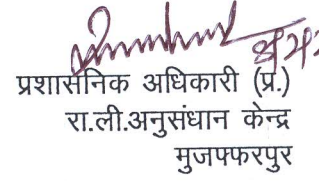 प्रशासनिक अधिकारी (प्र.)
रा.ली.अनुसंधान केन्द्र
मुजफ्फरपुर